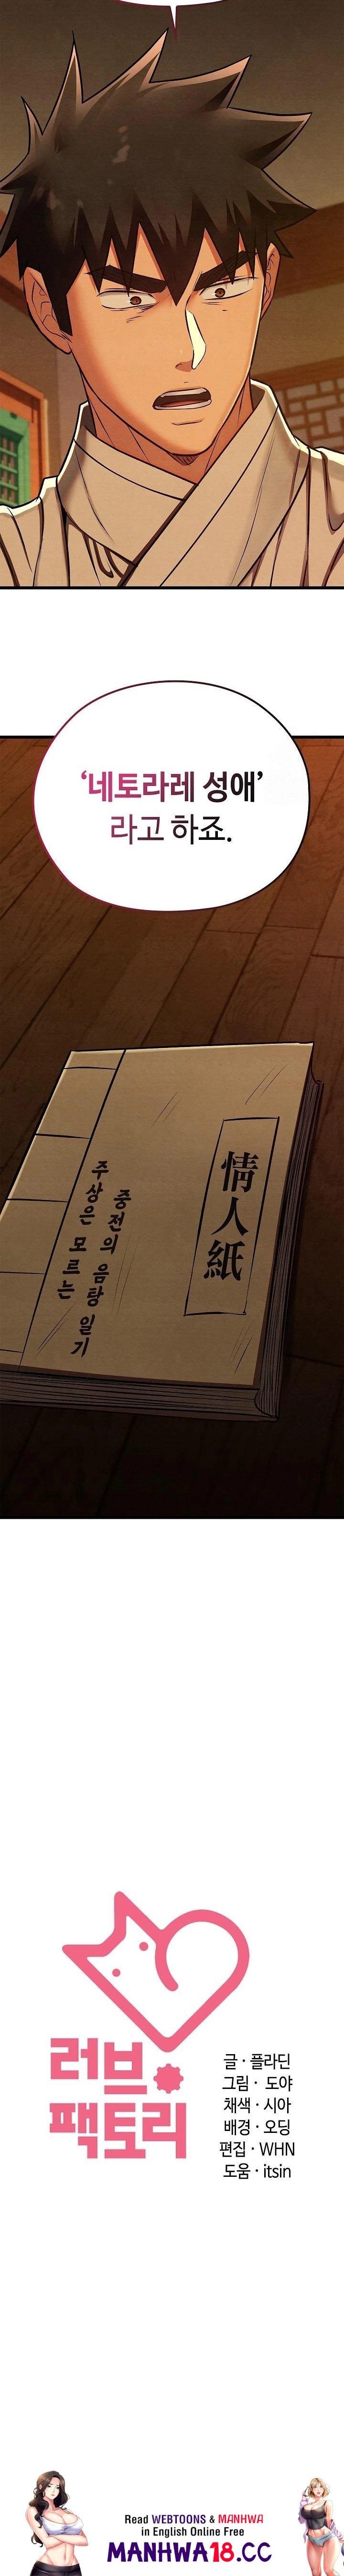 ‘네토라레 성애’
라고 하죠.
情人紙
중전의 음탕 일기
주상은 모르는
러브
팩토리
글 · 플라딘
그림 · 도야
채색 · 시아
배경 · 오딩
편집 · WHN
도움 · itsin
Read WEBTOONS & MANHWA
in English Online Free
MANHWA18.CC